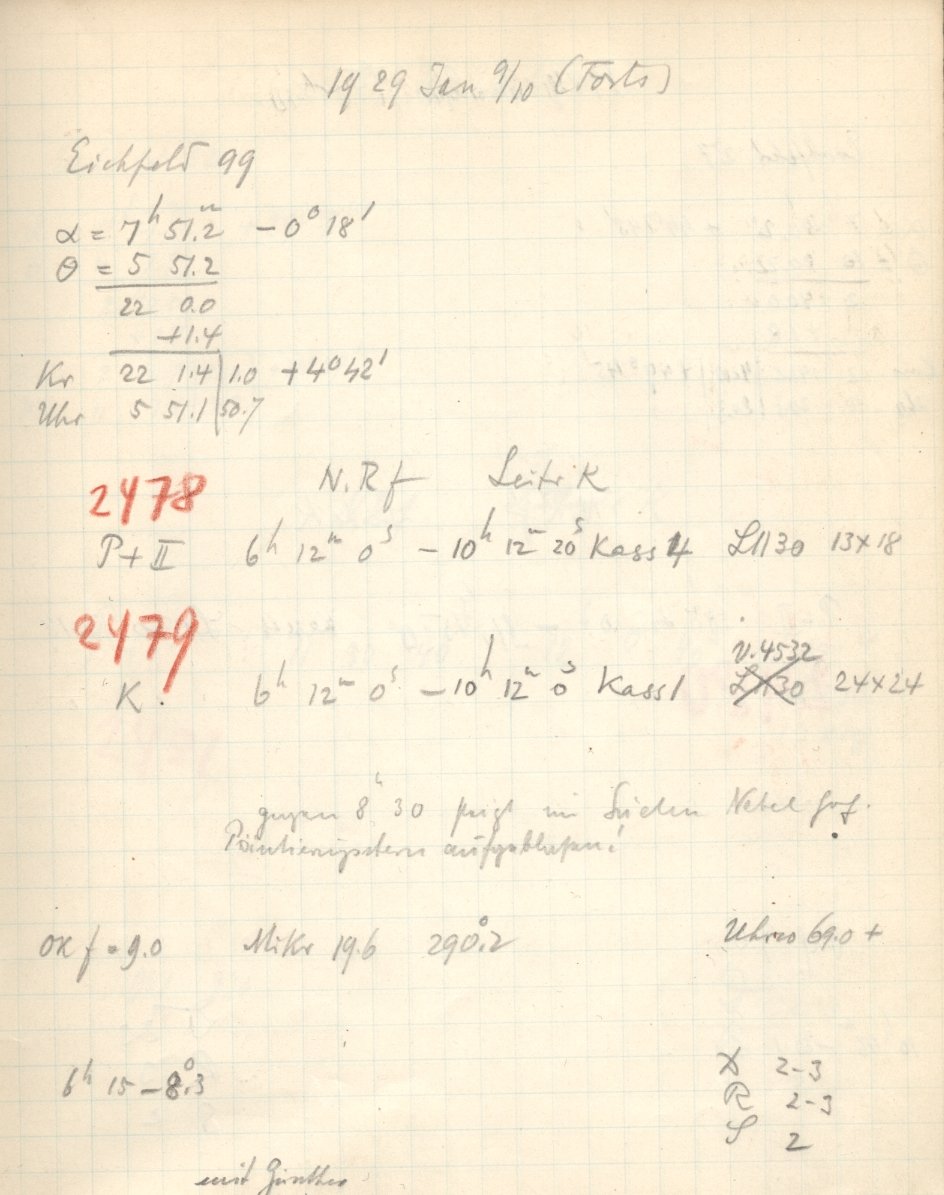 1929 Jan 9/10 (Forts)
Eichfeld 99
α = 7h 51.m2 – 0° 18'
θ = 5 51.2
22 0.0
+1.4
Kr 22 1.4 | 1.0 + 4° 42'
Uhr 5 51.1 | 50.7
2478
N.Rf Leitr K
P+II 6h 12m 0s – 10h 12m 20s Kass 4 LII 30 13×18
2479
v.4532
K. 6h 12m 0s – 10h 12m 0s Kass 1 LII 30 24×24
gegen 8h 30 steigt im Süden Nebel hoch.
Pointierungsstern aufgeblasen!
ok f = 9.0 Mikr 19.6 290°.2 Uhr 69.0 +
6h 15 – 8°.3
D 2-3
R 2-3
S 2
mit Günther